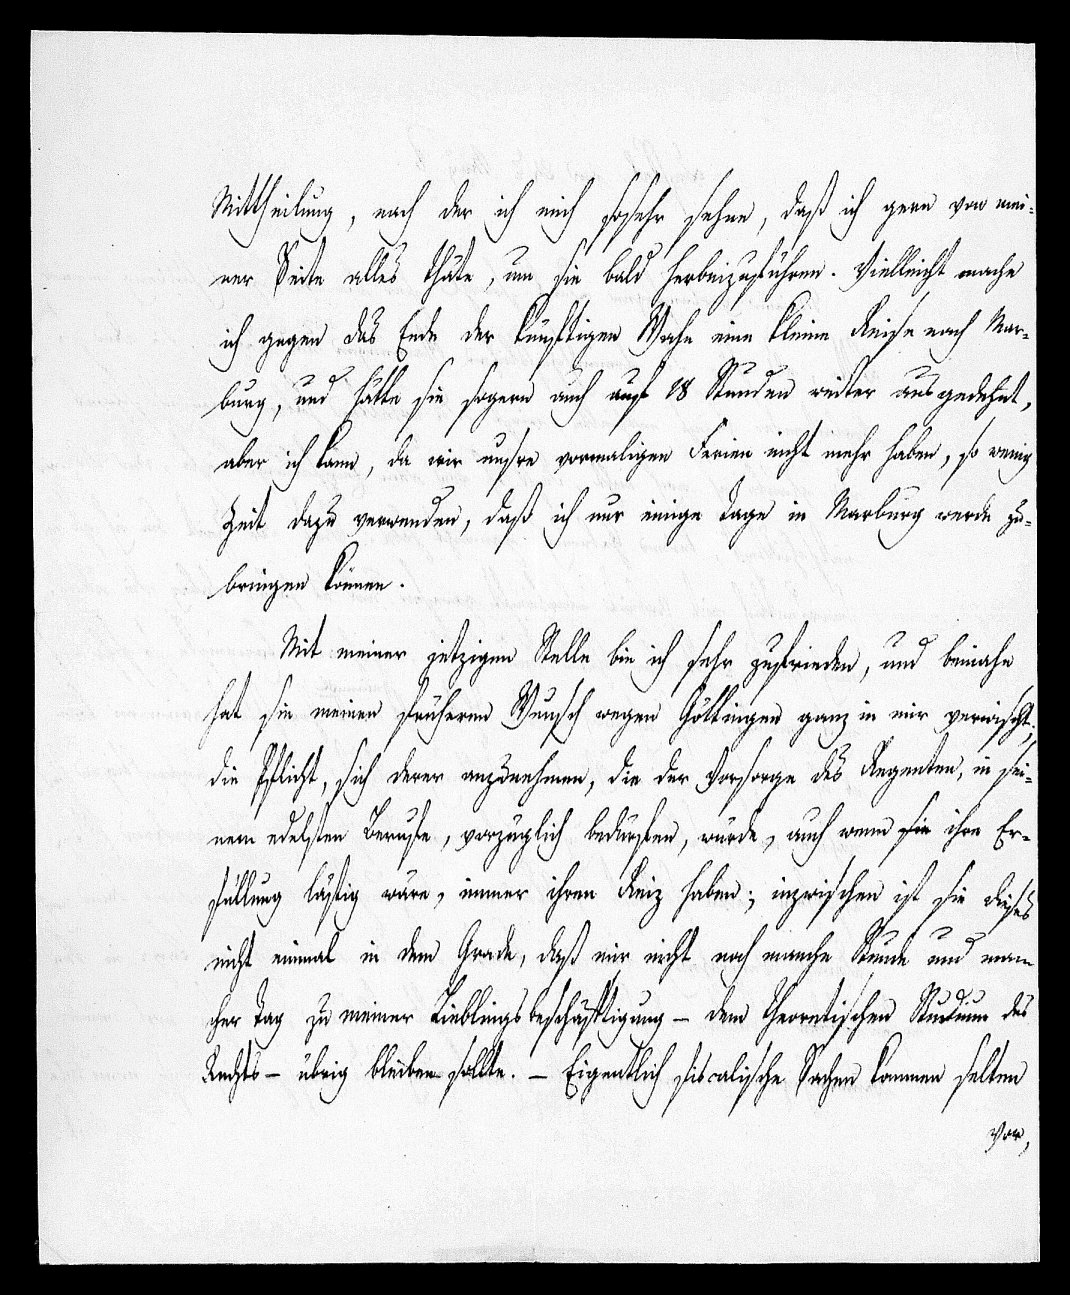 Mittheilung, nach der ich mich sosehr sehne, daß ich gern von mei-
ner Seite alles thäte, um sie bald herbeizuführen. Vielleicht mache
ich gegen das Ende der künftigen Woche eine kleine Reise nach Mar-
burg, und hätte sie sogern auch auf 18 Stunden weiter ausgedehnt,
aber ich kann, da wir unsre vormaligen Ferien nicht mehr haben, so wenig
Zeit dazu verwenden, daß ich nur einige Tage in Marburg werde zu-
bringen können.
Mit meiner jetzigen Stelle bin ich sehr zufrieden, und beinahe
hat sie meinen früheren Wunsch wegen Göttingen ganz in mir verwischt;
die Pflicht, sich derer anzunehmen, die der Vorsorge des Regenten, in sei-
nem edelsten Berufe, vorzüglich bedürften, würde, auch wenn sie ihre Er-
füllung lästig wäre, immer ihren Reiz haben; inzwischen ist sie dieses
nicht einmal in dem Grade, daß mir nicht noch manche Stunde und man-
cher Tag zu meiner Lieblingsbeschäftigung – dem theoretischen Studium des
Rechts – übrig bleiben sollte. – Eigentlich fiscalische Sachen kommen selten
vor,